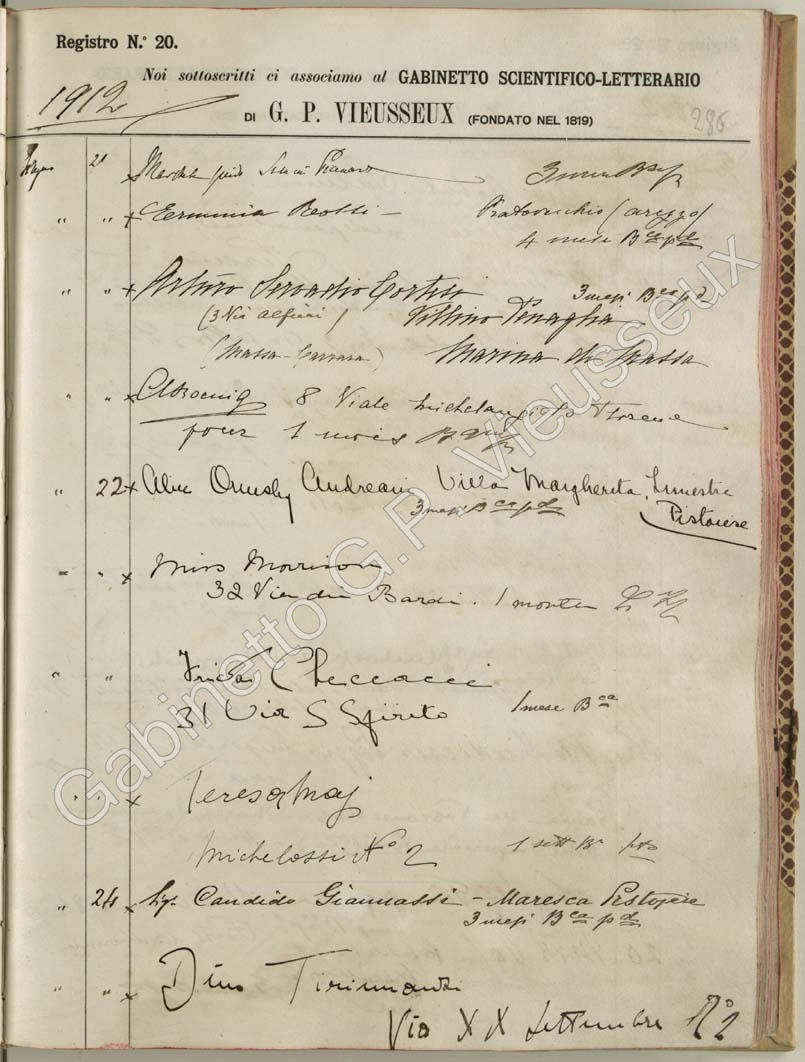 Registro N.° 20.
Noi sottoscritti ci associamo al GABINETTO SCIENTIFICO-LETTERARIO
1912
DI G. P. VIEUSSEUX (FONDATO NEL 1819)
286
21
" " x Erminia Reotti — Pratovecchio (arezzo)
4 mesi B.ca p.d.
" " x Arturo Servadio Cortesi 3 mesi B.ca p.d.
(3 Via Alfieri) Tillino Penaglia
(Massa-Carrara) Marina di Massa
" " x 8 Viale Michelangiolo Florence
pour 1 mois
" 22 x Alice Ormsby Andreani Villa Margherita, Limestre
3 mesi B.ca p.d. Pistoiese
" " x Miss Morrison
32 Via dei Bardi. 1 month
" " Checcacci
31 Via S Spirito 1 mese B.ca
" " x Teresa Maj
Michelossi N° 2 1 sett B.a
" 24 x Sig. Candido Giannassi — Maresca Pistojese
3 mesi B.ca p.d.
" " x Dino Tirimanzi
Via XX Settembre N° 2
Gabinetto G.P. Vieusseux